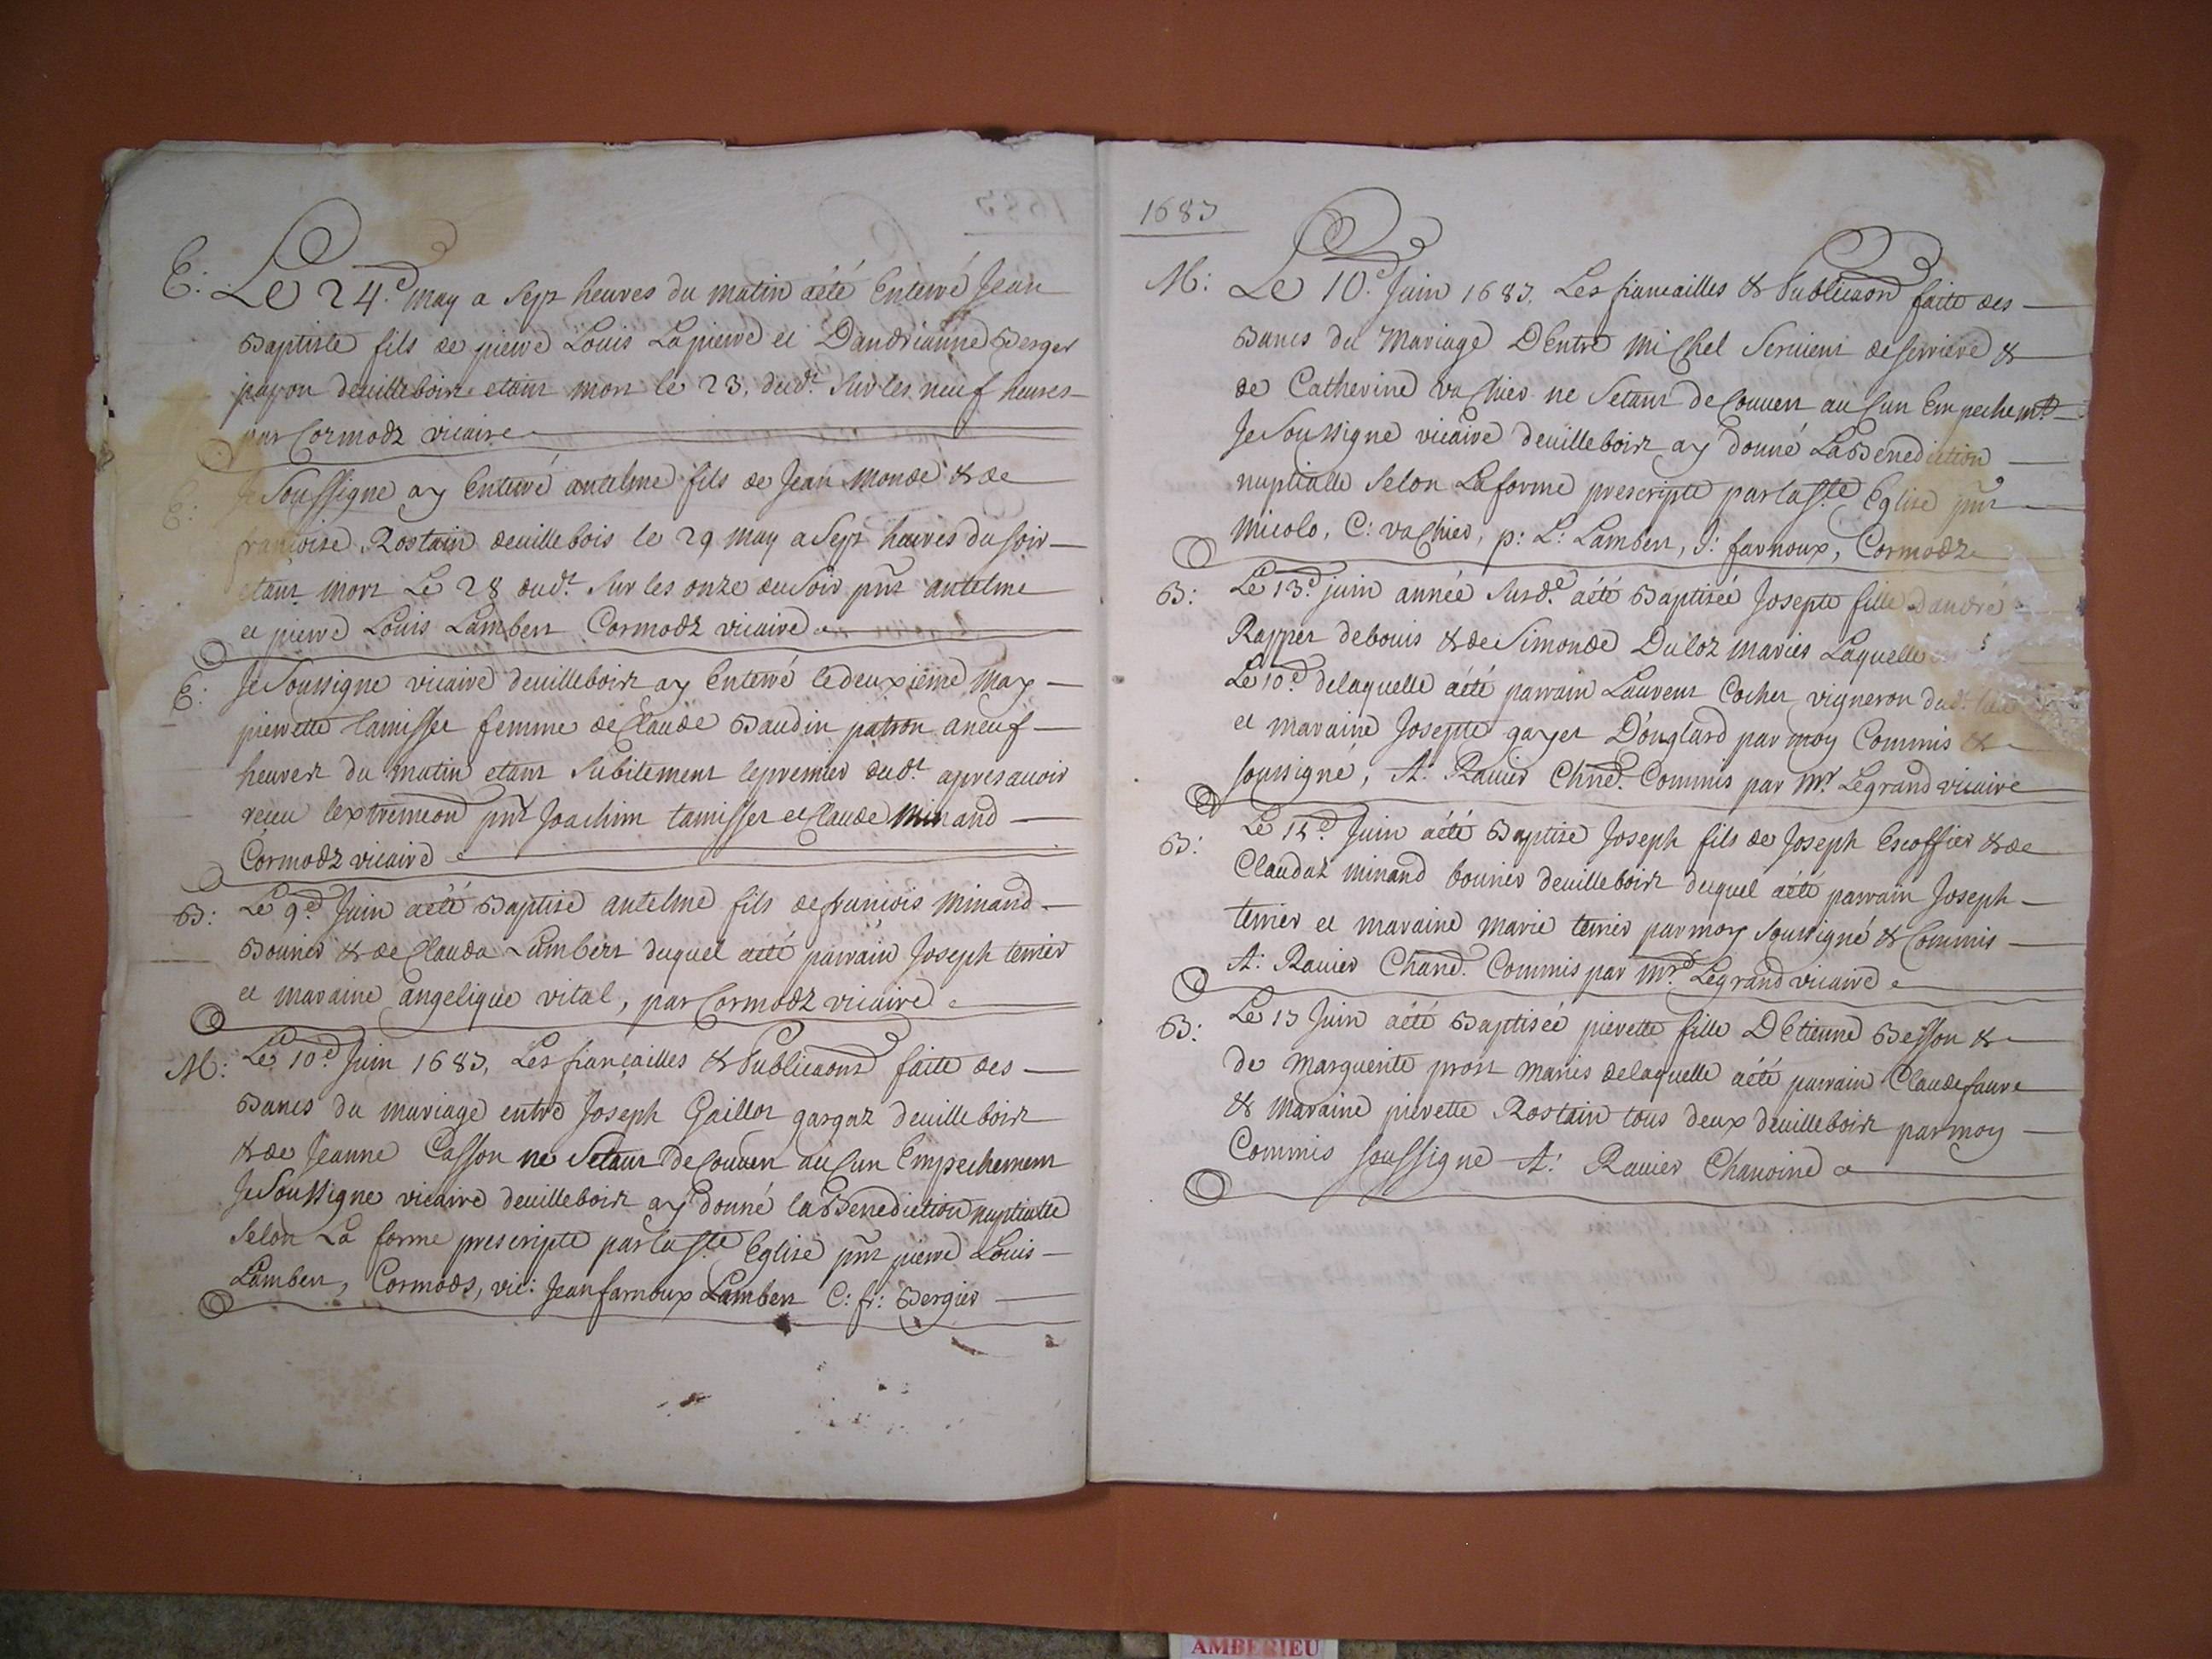 E: Le 24.e may a Sept heures du matin aété Enterré Jean
Baptiste fils de pierre Louis Lapierre et Dandrianne Berger
payson deuillebois etant mort le 23. dud.t Sur les neuf heures
par Cormodz vicaire
E: Je Soussigne ay Enterré antelme fils de Jean Monde & de
francoise Rostain deuillebois le 29 may a Sept heures du soir
etant mort Le 28 dud.t Sur les onze du Soir pnt antelme
et pierre Louis Lambert Cormodz vicaire
E: Je Soussigne vicaire deuillebois ay Enterré le deuxieme May
pierrette tamisser femme de Claude Baudin patron a neuf
heures du matin etant Subitement le premier dud.t apres auoir
receu lextremeon pnt Joachim tamisser et Claude Minand
Cormodz vicaire
B: Le 9.e Juin aété Baptisé antelme fils de francois Minand
Bouvier & de Clauda Lambert duquel aété parrain Joseph terrier
et maraine angelique vital, par Cormodz vicaire
M: Le 10.e Juin 1683, Les fiançailles & Publicaons faite des
Bancs du mariage entre Joseph Gaillot gargaz deuillebois
& de Jeanne Casson ne Setant de Couuert au Cun Empechement
Je Soussigne vicaire deuillebois ay donné la Benediction nuptialle
Selon La forme prescripte par la Ste Eglise pnt pierre Louis
Lambert, Cormods, vic: Jean farnoux Lambert C: fr: Bergier
1683
M: Le 10.e Juin 1683, Les fiancailles & Publicaon faite des
Bancs du Mariage D'Entre Mi Chel Seruient de serriere &
de Catherine vaChier ne Setant de Couuert au Cun Empechemt
Je Soussigne vicaire deuillebois ay donné La Benediction
nuptialle Selon La forme prescripte par la Ste Eglise pnt
Micolo, C: vaChier, p: L: Lambert, J: farnoux, Cormodz
B: Le 13.e juin année Susd.e aété Baptisée Josepte fille Dandré
Rapper debouis & de Simonde Duloz mariés Laquelle
Le 10.e delaquelle aété parrain Laurent Cocher vigneron dud.t
et maraine Josepte gayet D'ouglard par moy Commis &
soussigné, A: Rauier Chne. Commis par Mr. Legrand vicaire
B: Le 14.e Juin aété Baptisé Joseph fils de Joseph Escoffier & de
Claudaz minand bouvier deuillebois duquel aété parrain Joseph
terrier et maraine Marie terrier par moy Soussigné & Commis
A: Rauier Chane. Commis par Mr. Legrand vicaire
B: Le 15 Juin aété Baptisée pierette fille D'Etienne Besson &
de Marguerite prost mariés delaquelle aété parrain Claude faure
& Maraine pierette Rostain tous deux deuillebois par moy
Commis soussigne A: Rauier Chanoine
AMBERIEU